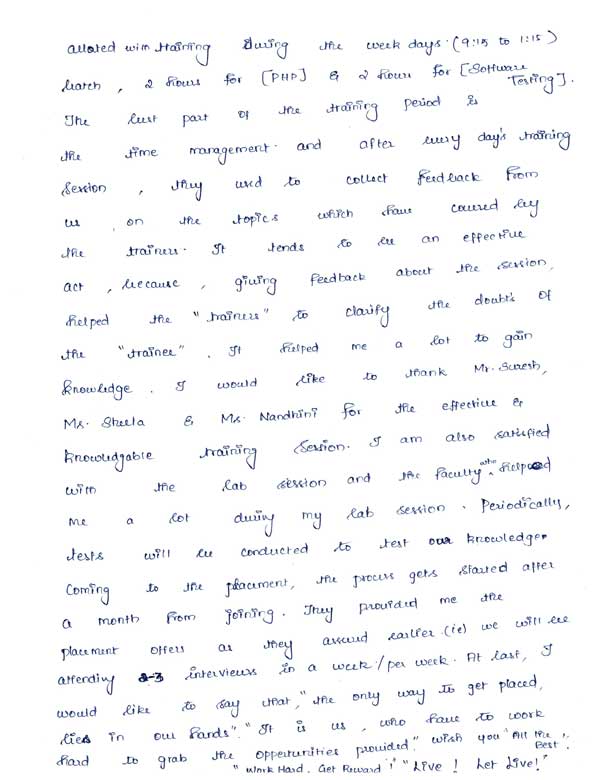 alloted with training During the week days. (9:15 to 1:15)
batch, 2 hours for [PHP] & 2 hours for [Software Testing].
The best part of the training period is
the time management. and after every day's training
session, they used to collect feedback from
us, on the topics which have covered by
the trainers. It tends to be an effective
act, because, giving feedback about the session,
helped the "trainers" to clarify the doubt's of
the "trainee". It helped me a lot to gain
knowledge. I would like to thank Mr. Suresh,
Ms. Sheela & Ms. Nandhini for the effective &
knowledgable training session. I am also satisfied
with the lab session and the faculty who helped
me a lot during my lab session. Periodically,
tests will be conducted to test our knowledge.
Coming to the placement, the process gets started after
a month from joining. They provided me the
placement offers as they assured earlier (ie) we will be
attending 2-3 interviews in a week/per week. At last, I
would like to say that, "the only way to get placed,
lies in our hands". "It is us, who have to work
hard to grab the oppertunities provided." wish you "All the Best".
"Work Hard, Get Reward"! "Live! Let Live!"